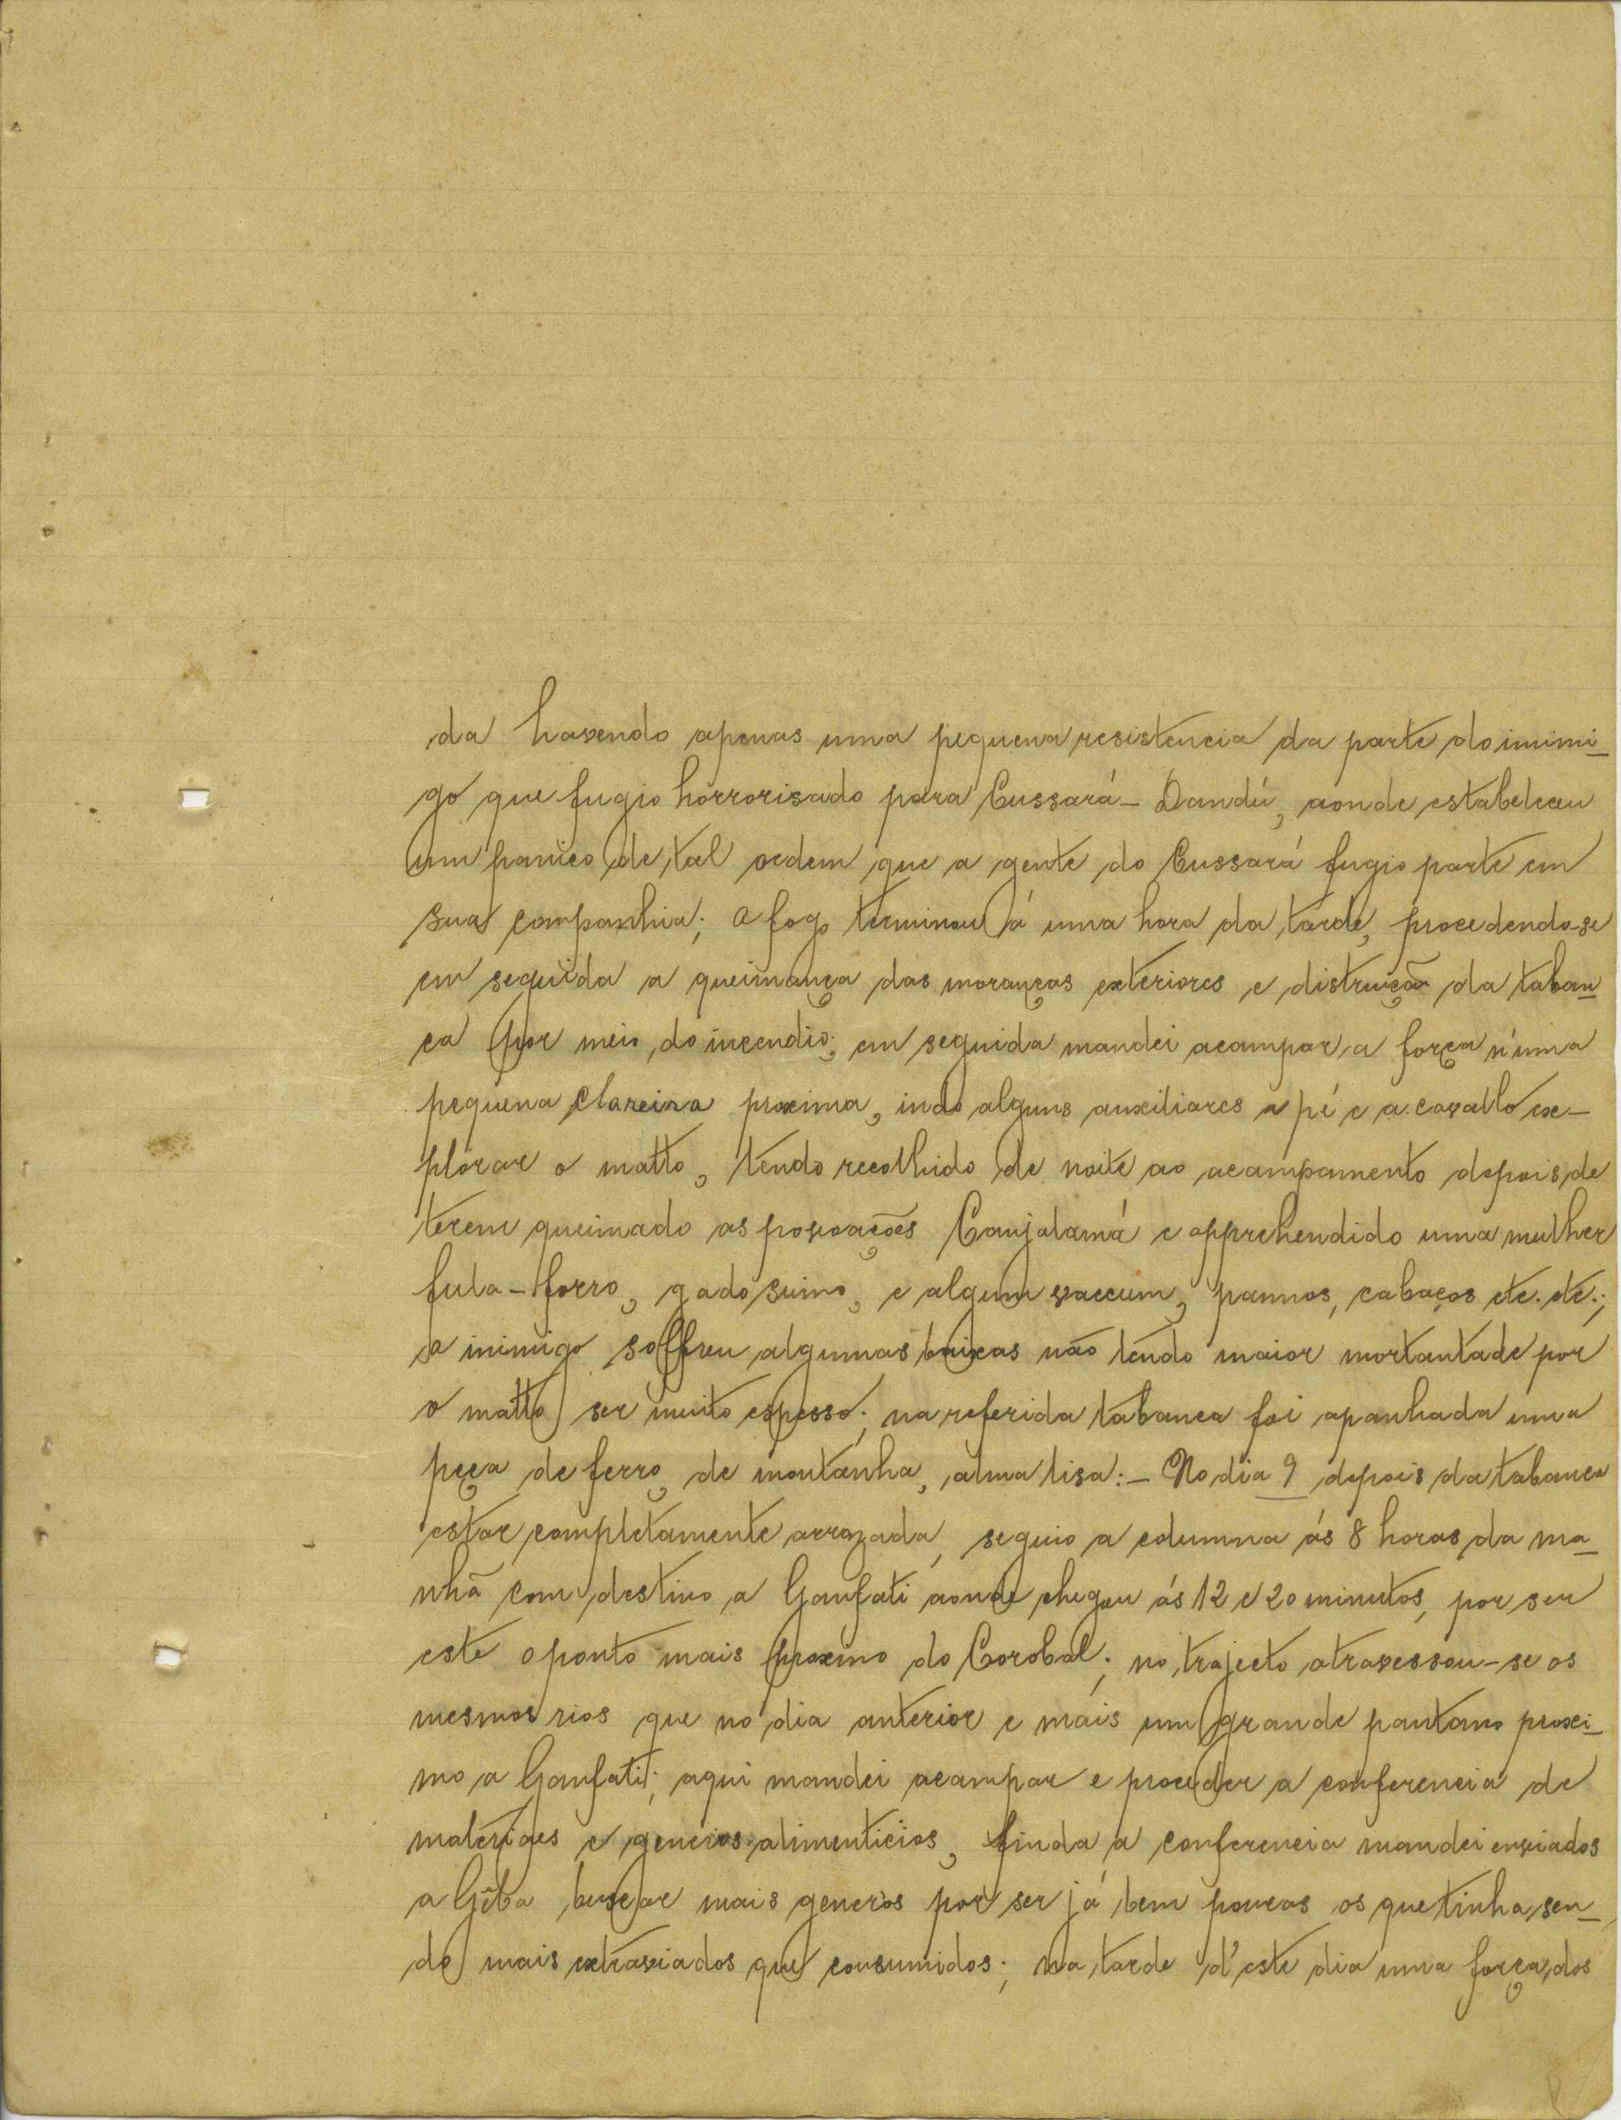 da havendo apenas uma pequena resistencia da parte do inimi-
go que fugio horrorisado para Cussará-Dandú, aonde estabeleceu
um panico de tal ordem que a gente do Cussará fugio parte em
sua companhia; O fogo terminou á uma hora da tarde, procedendo-se
em seguida a queimança das moranças exteriores e distruição da taban-
ca por meio do incendio; em seguida mandei acampar a força n'uma
pequena clareira proxima, indo alguns auxiliares a pé e a cavallo ex-
plorar o matto, tendo recolhido de noite ao acampamento depois de
terem queimado as povoações Canjalamá e apprehendido uma mulher
fula-forro, gado suino, e algum vaccum, pannos, cabaços etc. etc.;
o inimigo soffreu algumas baixas não tendo maior mortantade por
o matto ser muito espesso; na referida tabanca foi apanhada uma
peça de ferro, de montanha, alma lisa:- No dia 9 depois da tabanca
estar completamente arrazada, seguio a columna ás 8 horas da ma-
nhã com destino a Ganfati aonde chegou ás 12 e 20 minutos, por ser
este o ponto mais proximo do Corobal; no trajecto atravessou-se os
mesmos rios que no dia anterior e mais um grande pantano proxi-
mo a Ganfati; aqui mandei acampar e proceder a conferencia de
materiaes e generos alimenticios, finda a conferencia mandei enviados
a Gêba buscar mais generos por ser já bem poucos os que tinha, sen-
do mais extraviados que consumidos; na tarde d'este dia uma força dos